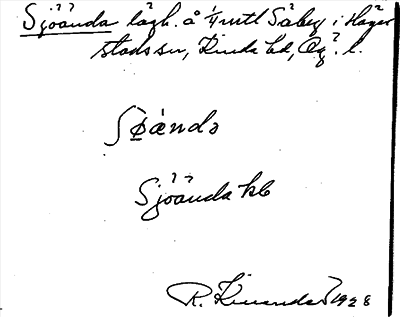 Sjöända lägh. å 1/4 mtl Säby i Häger
stads sn, Kinda hd, Ög. l.
Sjöända hb
R. 1928